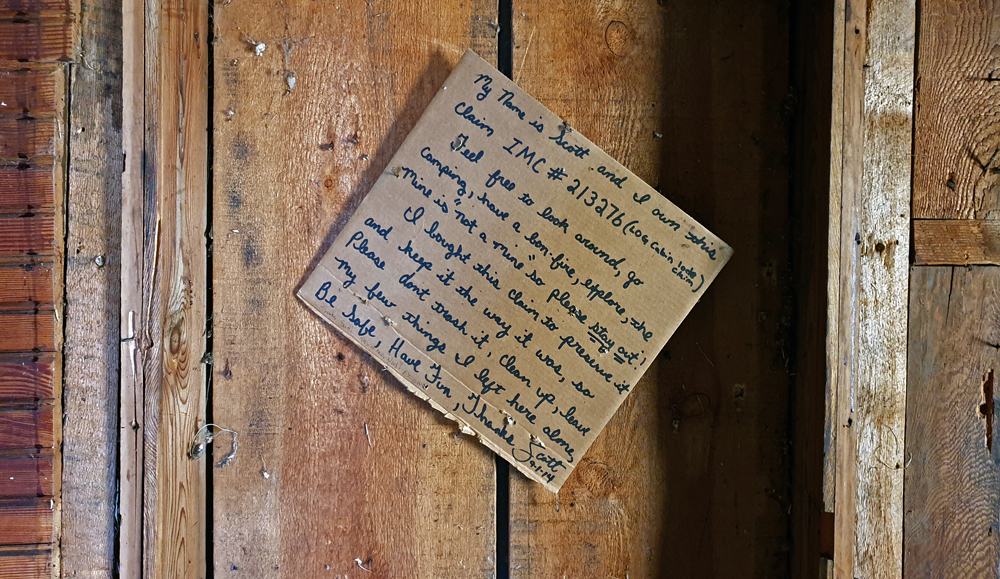 My Name is Scott and I own this
Claim IMC # 213276 (Log Cabin Lode Claim)
Feel free to look around, go
camping, have a bonfire, explore, the
Mine is "not a mine" so please stay out!
I bought this claim to preserve it
and keep it the way it was, so
Please dont trash it, Clean up, leave
My few things I left here alone,
Be Safe, Have Fun, Thanks Scott
9-1-14